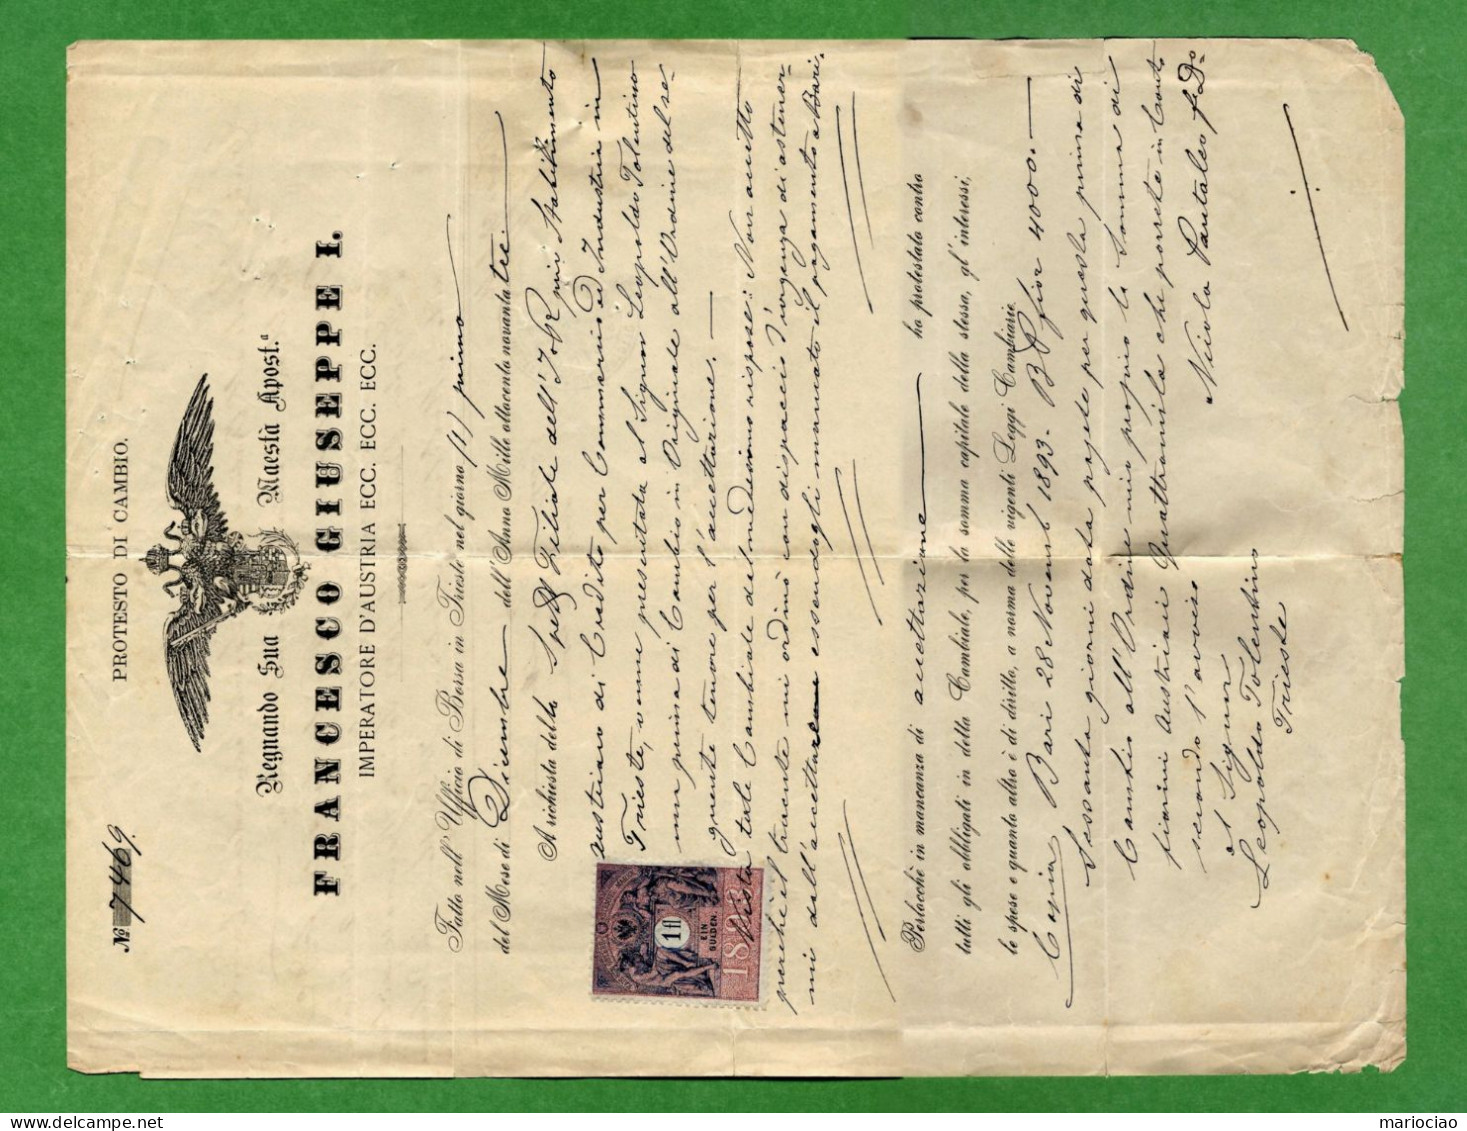 PROTESTO DI CAMBIO.
№ 7469.
Regnando Sua Maestà Apost.ª
FRANCESCO GIUSEPPE I.
IMPERATORE D'AUSTRIA ECC. ECC. ECC.
Fatto nell' Uffizio di Borsa in Trieste nel giorno (1) primo
del Mese di Dicembre dell' Anno Mille ottocento novanta tre.
A richiesta della Filiale dell' Stabilimento
austriaco di Credito per Commercio ed Industria in
Trieste, venne presentata al Signor Leopoldo Tolentino
una prima di Cambio in Originale all'Ordine del se-
guente tenore per l'accettazione.—
Vista tale Cambiale dal medesimo rispose: Non accetto
perchè il traente mi ordinò con dispaccio d'urgenza di astener-
mi dall'accettare essendogli mancato il pagamento a Bari.
Perlocchè in mancanza di accettazione — ho protestato contro
tutti gli obbligati in detta Cambiale, per la somma capitale della stessa, gl' interessi,
le spese e quanto altro è di diritto, a norma delle vigenti Leggi Cambiarie.
Copia Bari 28 Novemb 1893. B.P. fior 4000.—
Sessanta giorni data pagate per questa prima di
Cambio all'Ordine mio proprio la Somma di
fiorini austriaci Quattromila che porrete in Conto
secondo l'avviso
al Signore Nicola Pantaleo f. Dº
Leopoldo Tolentino
Trieste
1 fl
EIN
GULDEN
1893
mariociao